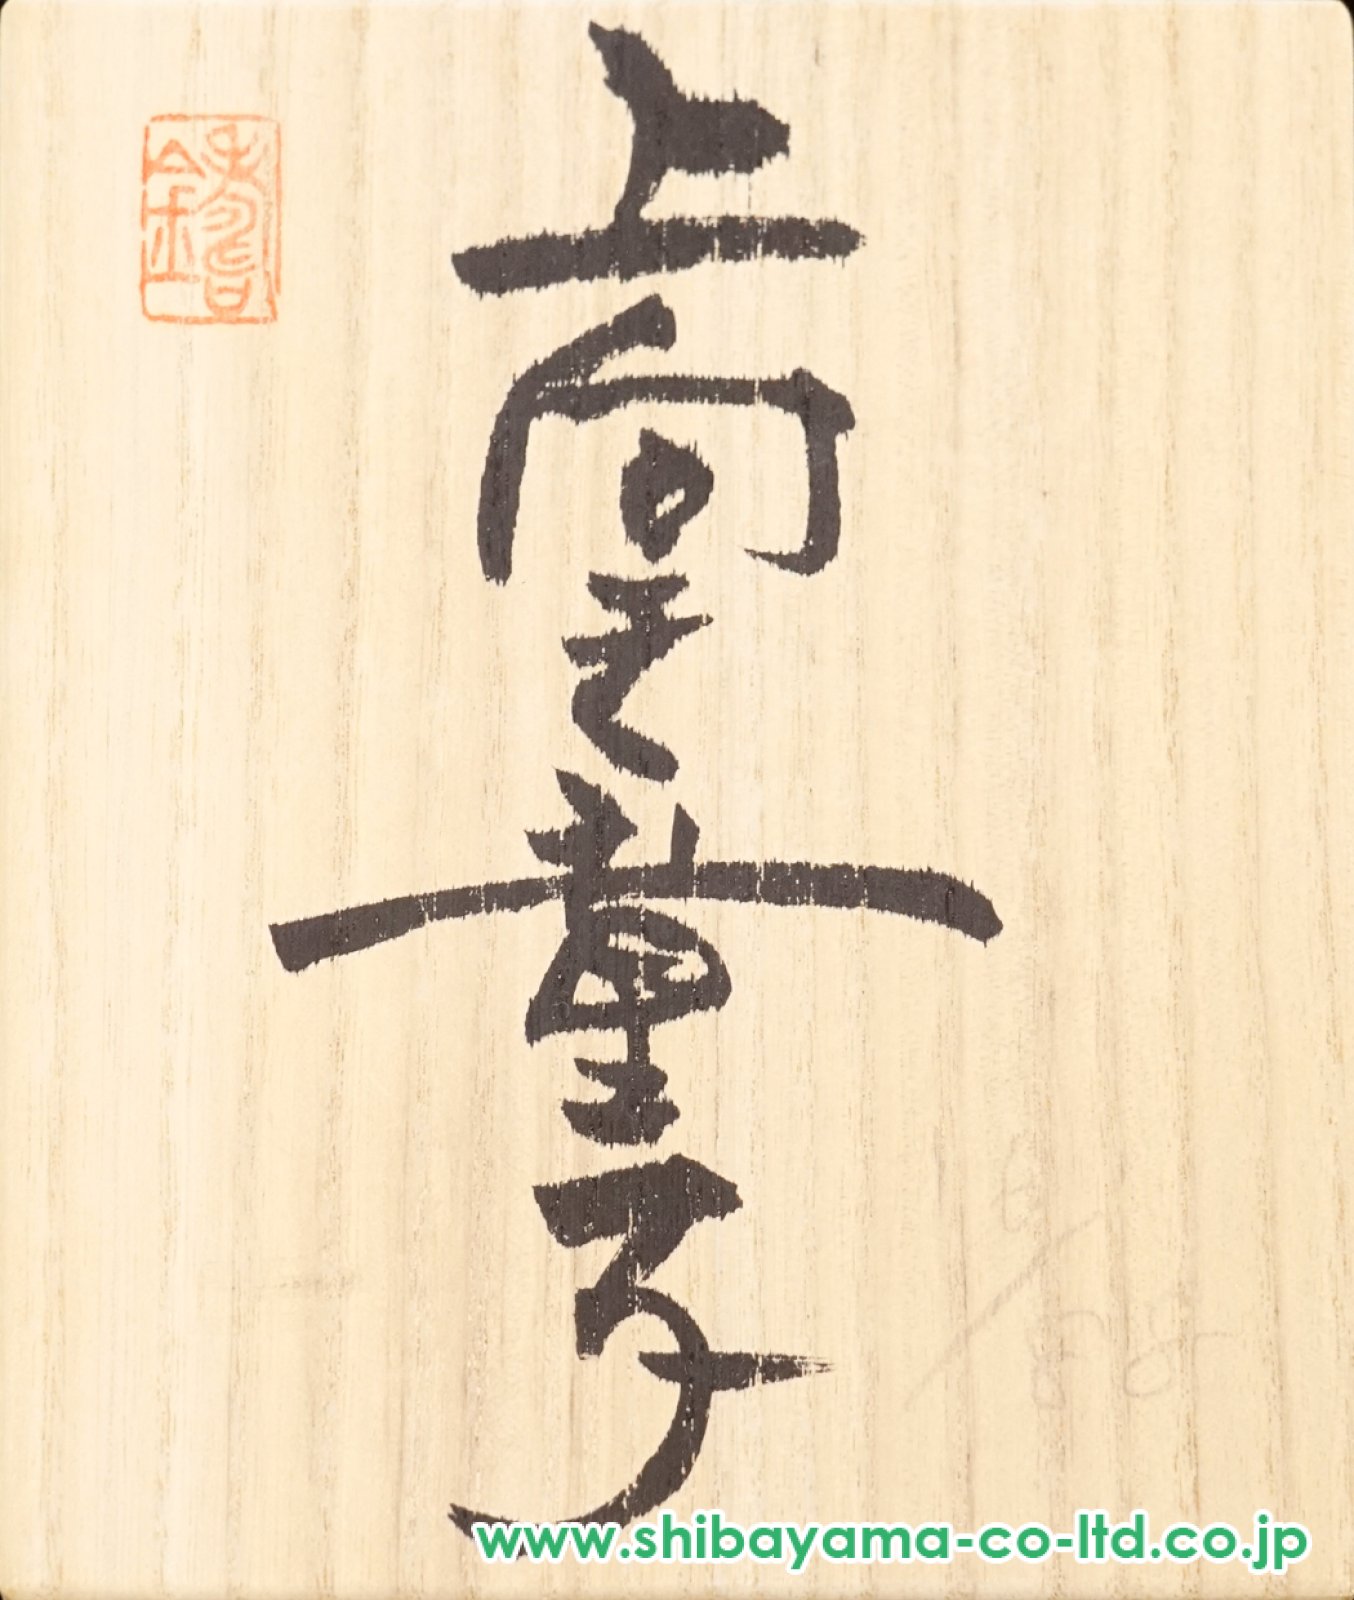 上向き童子
鑄
www.shibayama-co-ltd.co.jp